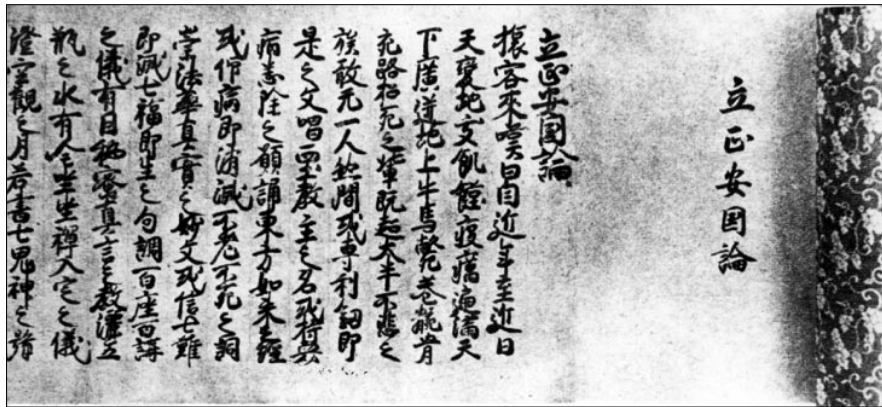 立正安国論
立正安国論
旅客來嘆曰自近年至近日
天變地夭飢饉疫癘遍滿天
下廣迸地上牛馬斃巷骸骨
充路招死之輩既超大半不悲之
族敢无一人然間或專利劔即
是之文唱西土教主之名或持衆
病悉除之願誦東方如来之經
或仰病即消滅不老不死之詞
崇法華真實之妙文或信七難
即滅七福即生之句調百座百講
之儀有因秘密真言之教灑五
瓶之水有全坐禪入定之儀
澄空觀之月若書七鬼神之號